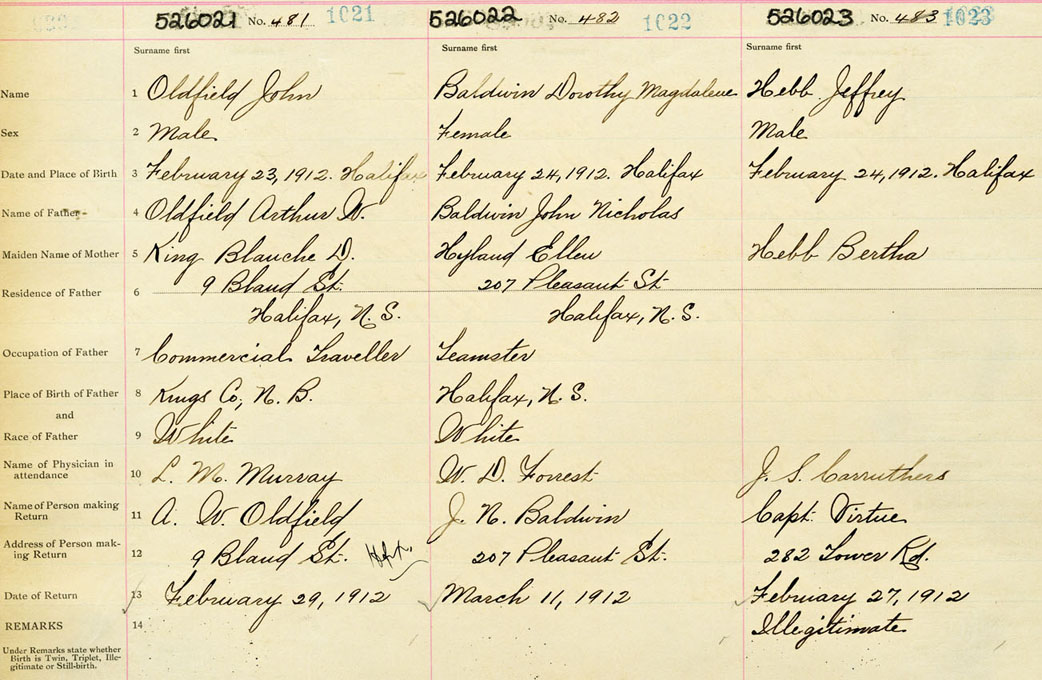 526021 No. 481 1021 526022 No. 482 1022 526023 No. 483 1023
Surname first Surname first Surname first
Name 1 Oldfield John Baldwin Dorothy Magdalene Hebb Jeffrey
Sex 2 Male Female Male
Date and Place of Birth 3 February 23, 1912. Halifax February 24, 1912. Halifax February 24, 1912. Halifax
Name of Father 4 Oldfield Arthur W. Baldwin John Nicholas
Maiden Name of Mother 5 King Blanche D. Hyland Ellen Hebb Bertha
Residence of Father 6 9 Bland St. 207 Pleasant St
Halifax, N.S. Halifax, N.S.
Occupation of Father 7 Commercial Traveller Teamster
Place of Birth of Father 8 Kings Co, N.B. Halifax, N.S.
and
Race of Father 9 White White
Name of Physician in
attendance 10 L. M. Murray W. D. Forrest J. S. Carruthers
Name of Person making
Return 11 A. W. Oldfield J. N. Baldwin Capt. Virtue
Address of Person mak-
ing Return 12 9 Bland St. Hfx. 207 Pleasant St. 282 Tower Rd.
Date of Return 13 February 29, 1912 March 11, 1912 February 27, 1912
REMARKS 14 Illegitimate
Under Remarks state whether
Birth is Twin, Triplet, Ille-
gitimate or Still-birth.